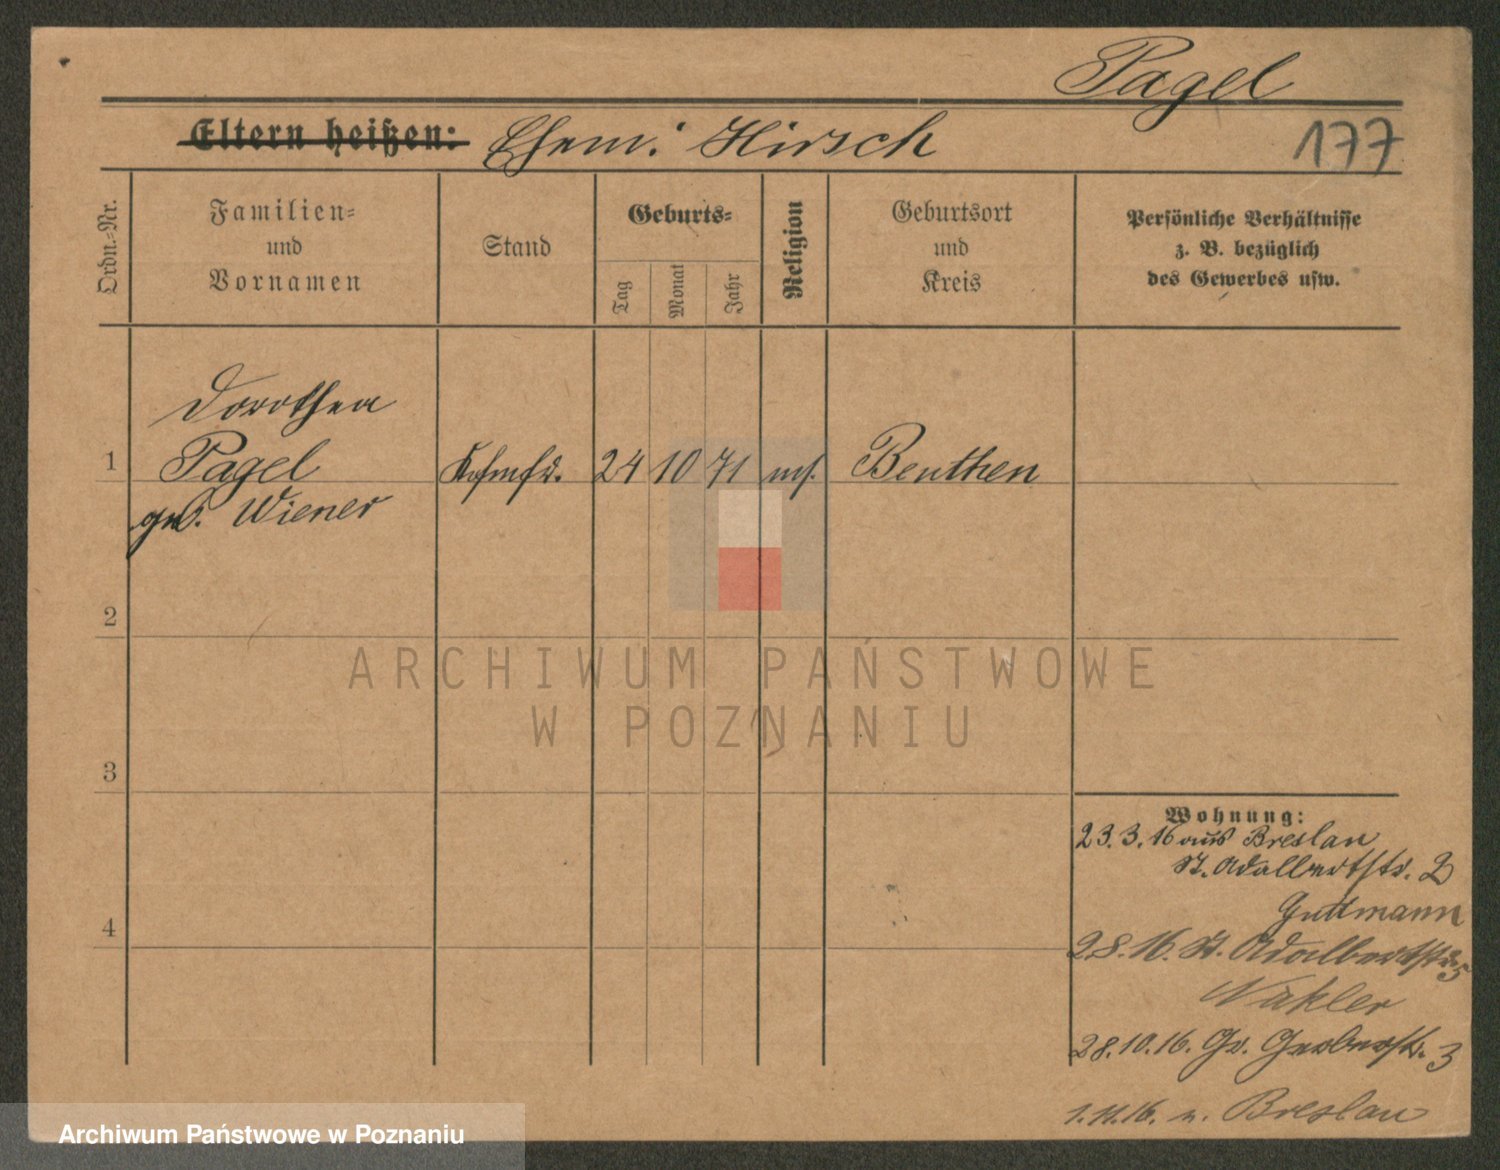 Pagel
177
Eltern heißen: Ehem: Hirsch
Ordn.=Nr.
Familien=
und
Vornamen
Stand
Geburts=
Tag
Monat
Jahr
Religion
Geburtsort
und
Kreis
Persönliche Verhältnisse
z. B. bezüglich
des Gewerbes usw.
Dorothea
1 Pagel 24 10 71 mos. Beuthen
geb. Wiener
2
3
4
Wohnung:
23.3.16 aus Breslau
St. Adalbertstr. 2
Guttmann
St. Adalbertstr.
28.10.16. Gr. Gerberstr. 3
1.11.16. n. Breslau
ARCHIWUM PAŃSTWOWE
W POZNANIU
Archiwum Państwowe w Poznaniu